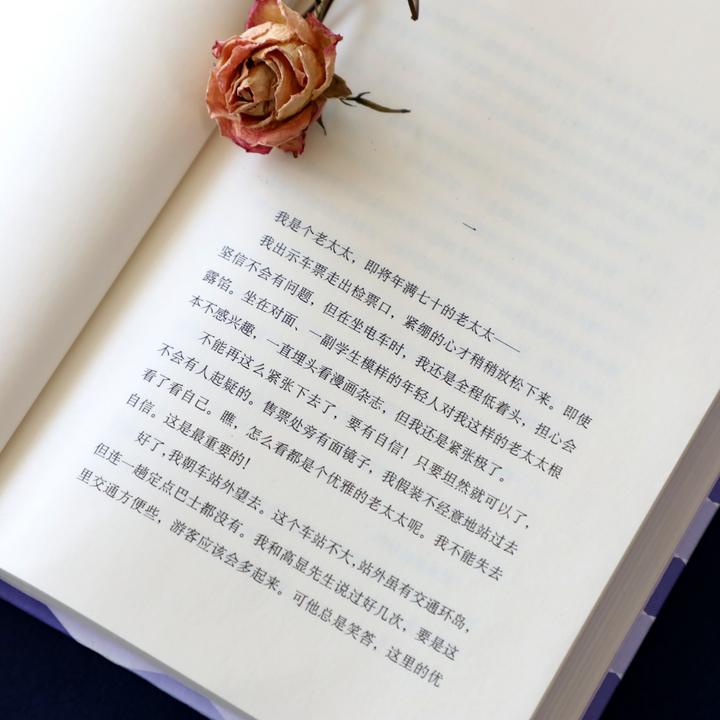 一
我是个老太太，即将年满七十的老太太——
我出示车票走出检票口，紧绷的心才稍稍放松下来。即使
坚信不会有问题，但在坐电车时，我还是全程低着头，担心会
露馅。坐在对面、一副学生模样的年轻人对我这样的老太太根
本不感兴趣，一直埋头看漫画杂志，但我还是紧张极了。
不能再这么紧张下去了，要有自信！只要坦然就可以了，
不会有人起疑的。售票处旁有面镜子，我假装不经意地站过去
看了看自己。瞧，怎么看都是个优雅的老太太呢。我不能失去
自信。这是最重要的！
好了，我朝车站外望去。这个车站不大，站外虽有交通环岛，
但连一趟定点巴士都没有。我和高显先生说过好几次，要是这
里交通方便些，游客应该会多起来。可他总是笑答，这里的优